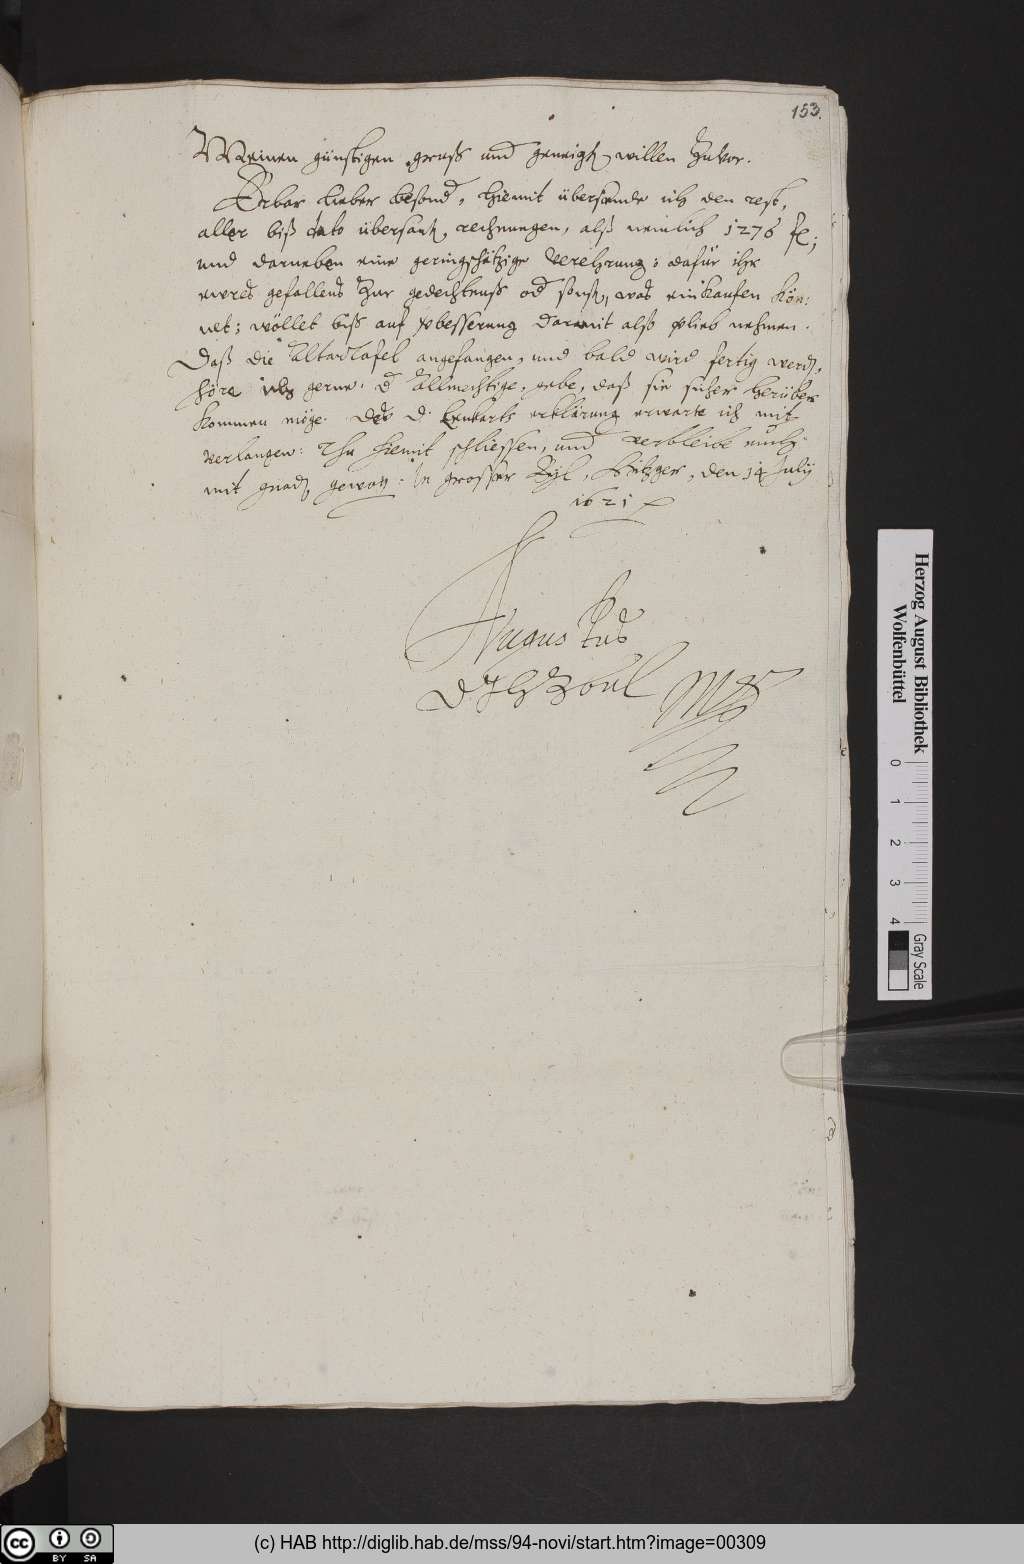 153.
Meinen günstigen gruß und geneigt. willen zuvor.
Erbar lieber besond., hiemit übersende ich den rest,
aller biß dato übersant. rechnungen, alß nemlich 1276 fl;
und darneben eine geringschätzige verehrung: dafür ihr
eures gefallens zur gedechtnuß od. sonst, was einkaufen kön:
net; wöllet biß auf verbesserung darmit also verlieb nehmen.
Daß die AltarTafel angefangen, und bald wird fertig werd.,
höre ich gerne. d. Allmechtige, gebe, daß sie sicher herüber
kommen möge. Des D. erklärung erwarte ich mit
verlangen: Thu hiemit schliessen, und verbleibe euch
mit gnad. gewog. In grosser Eyl, Hitzger, den 14 July
1621
Augustus
DIHZBuL Mpp
Herzog August Bibliothek
Wolfenbüttel
0 1 2 3 4
Gray Scale
cc BY SA
(c) HAB http://diglib.hab.de/mss/94-novi/start.htm?image=00309